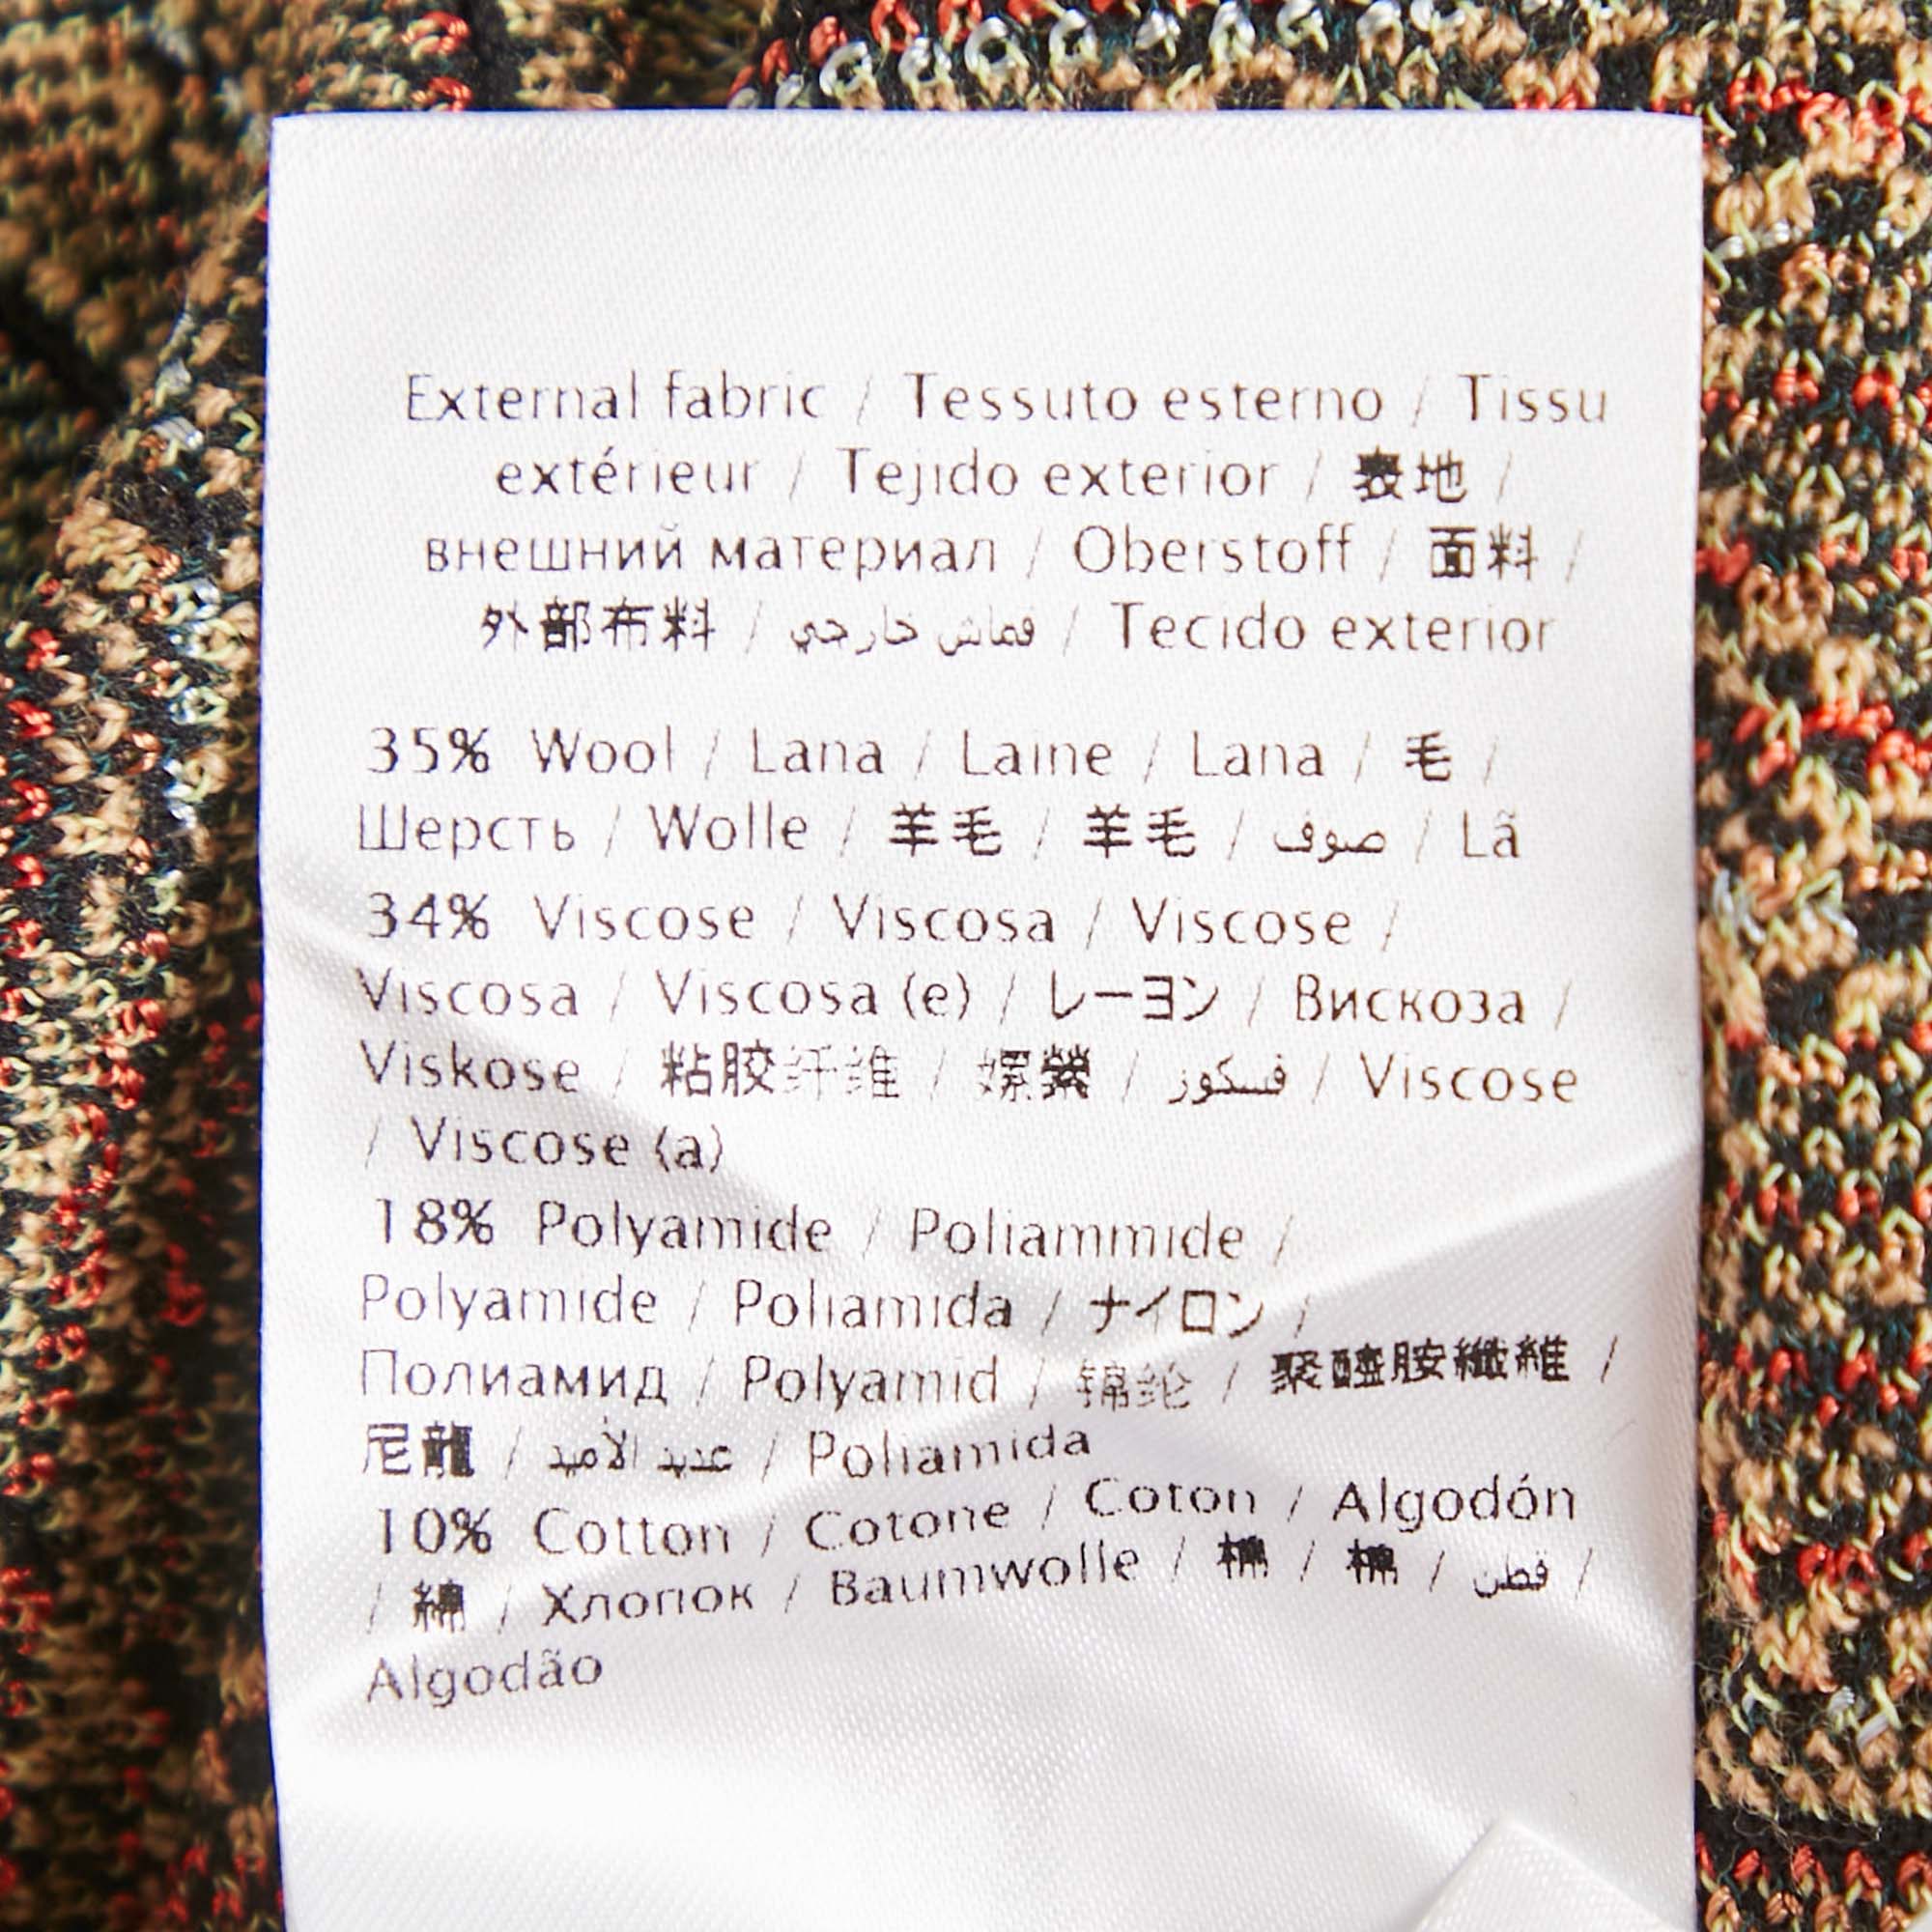 External fabric / Tessuto esterno / Tissu
extérieur / Tejido exterior / 表地 /
внешний материал / Oberstoff / 面料 /
外部布料 / قماش خارجي / Tecido exterior
35% Wool / Lana / Laine / Lana / 毛 /
Шерсть / Wolle / 羊毛 / 羊毛 / صوف / Lã
34% Viscose / Viscosa / Viscose /
Viscosa / Viscosa (e) / レーヨン / Вискоза /
Viskose / 粘胶纤维 / 嫘縈 / فسكوز / Viscose
/ Viscose (a)
18% Polyamide / Poliammide /
Polyamide / Poliamida / ナイロン /
Полиамид / Polyamid / 锦纶 / 聚醯胺纖維 /
尼龍 / عديد الأميد / Poliamida
10% Cotton / Cotone / Coton / Algodón
/ 綿 / Хлопок / Baumwolle / 棉 / 棉 / قطن /
Algodão